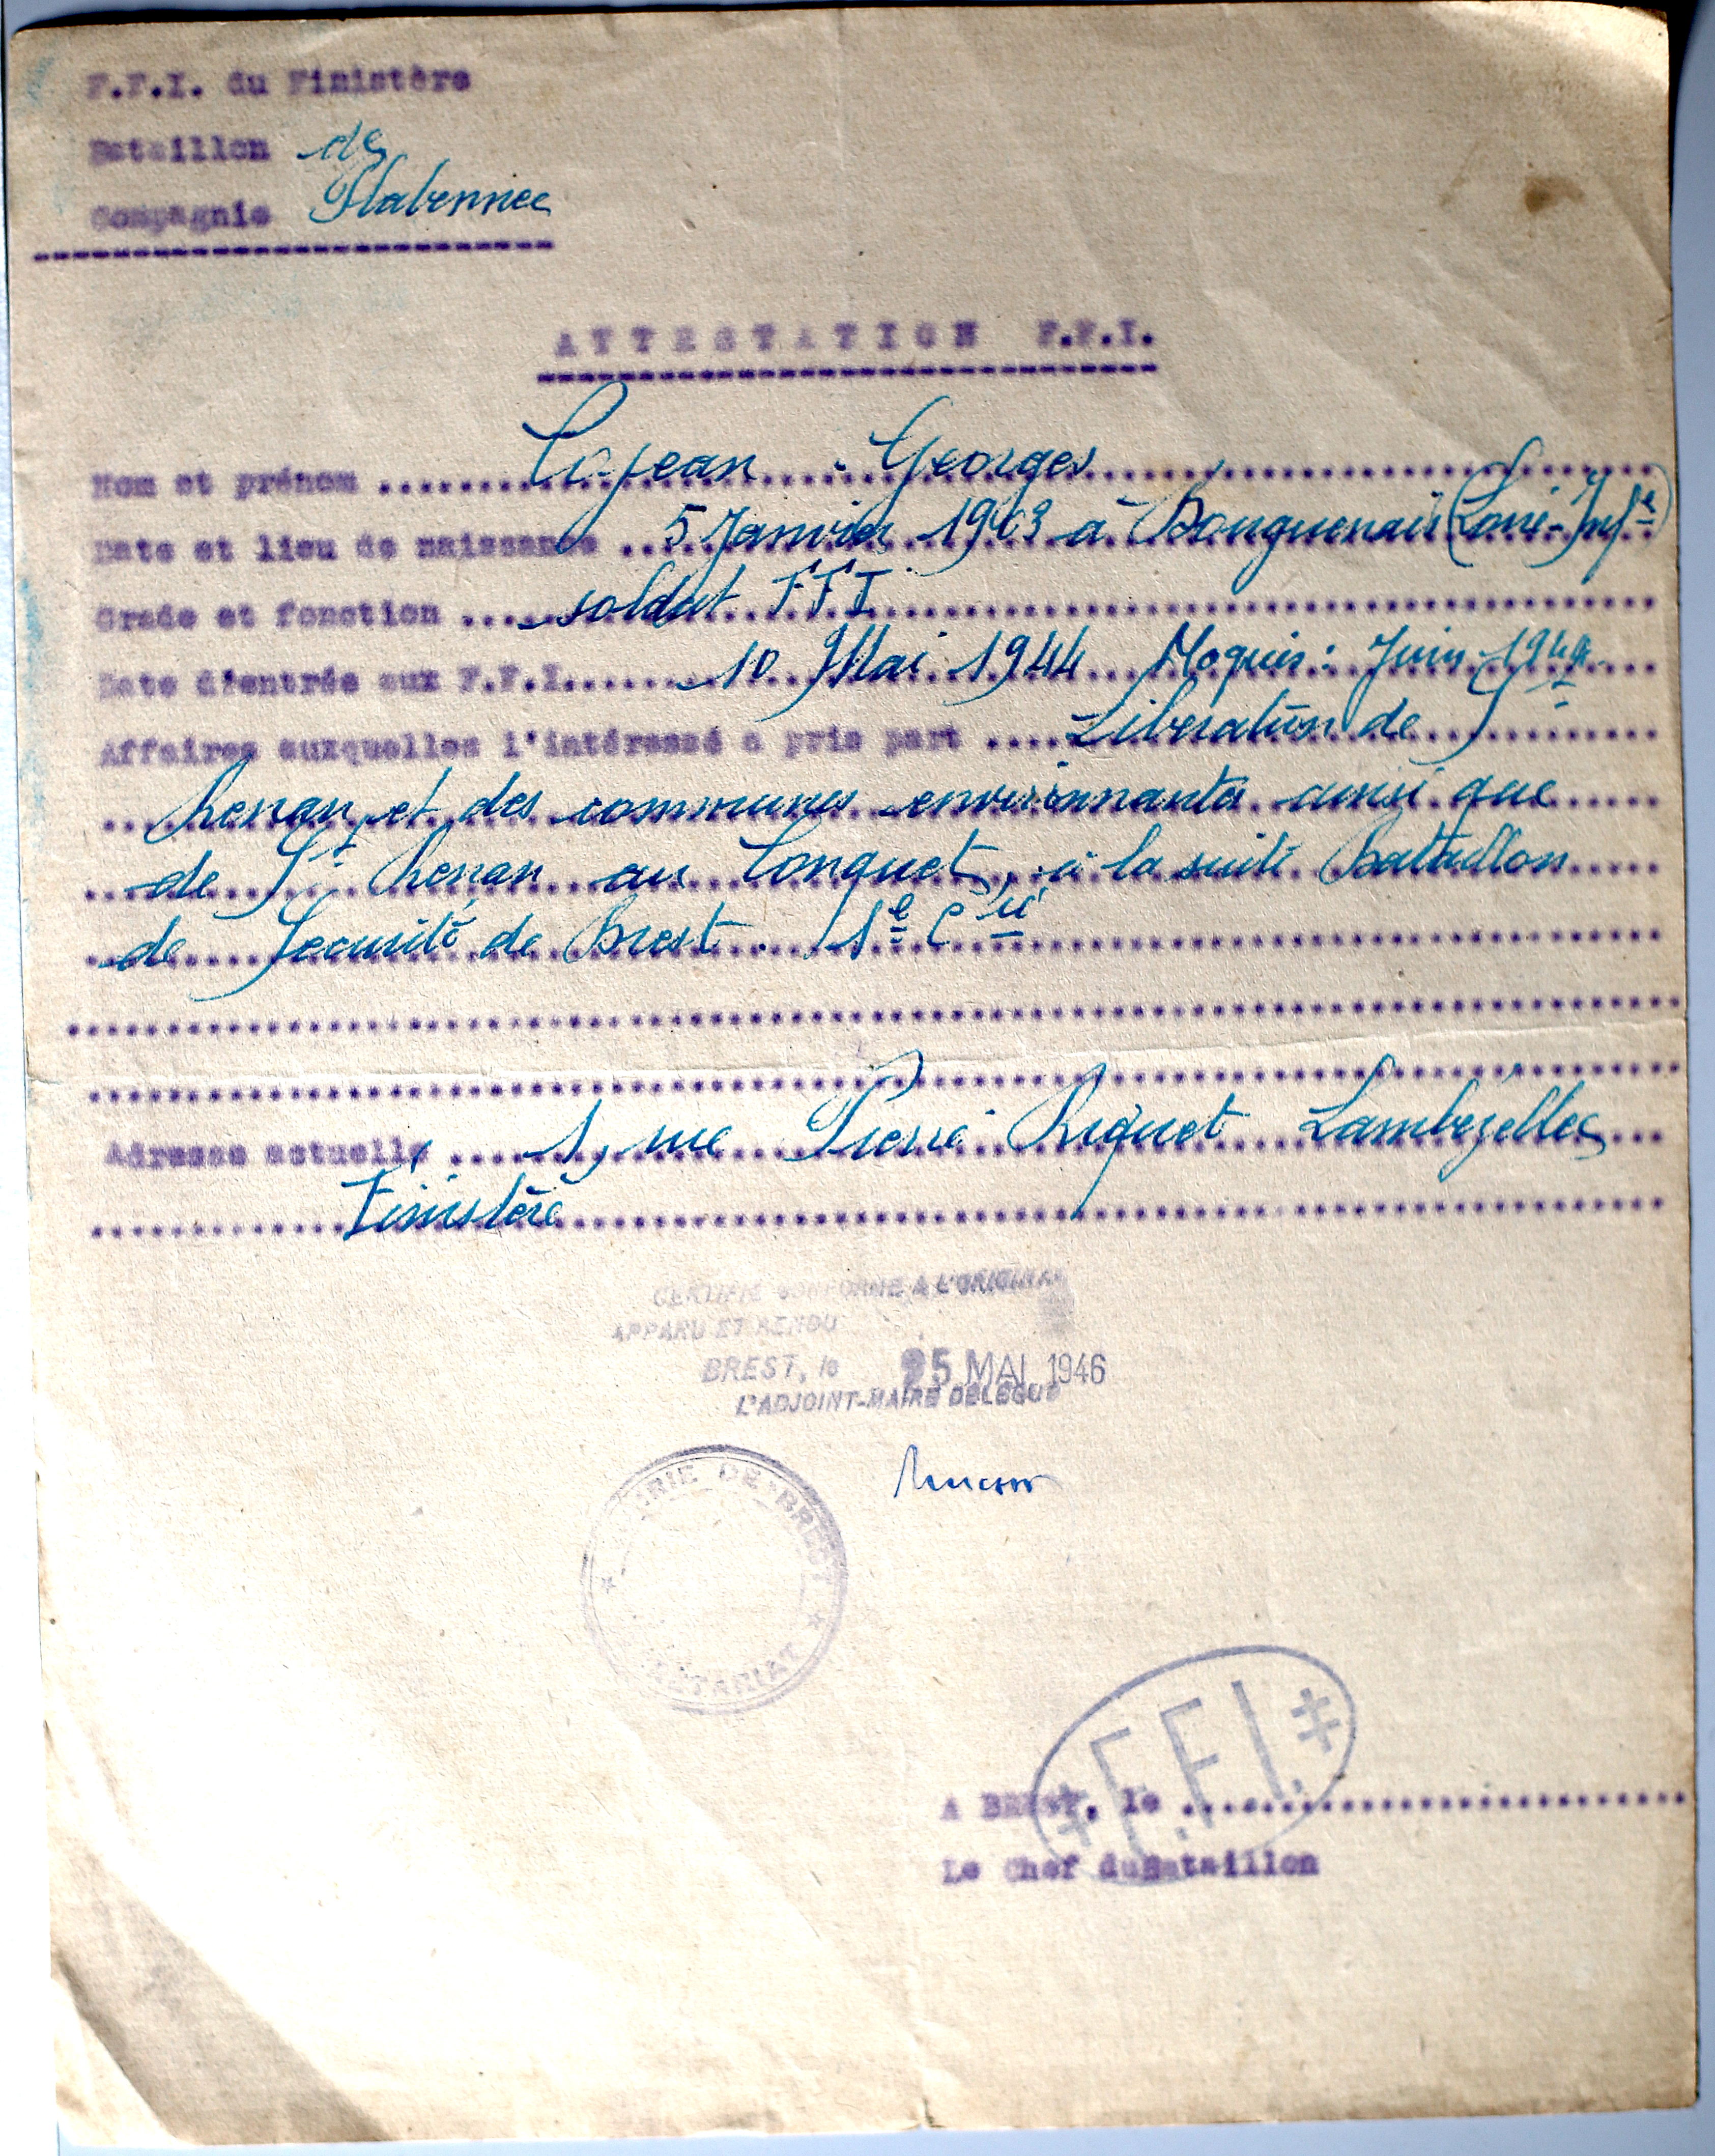 F.F.I. du Finistère
Bataillon de
Compagnie Plabennec
ATTESTATION F.F.I.
Nom et prénom Lejean Georges
Date et lieu de naissance 5 Janvier 1903 à Bouguenais (Loire-Infre)
Grade et fonction soldat FFI
Date d'entrée aux F.F.I. 10 Mai 1944 Maquis: Juin 1944
Affaires auxquelles l'intéressé a pris part Libération de St
Renan et des communes environnantes ainsi que
de St Renan au Conquet, à la suite Bataillon
de Sécurité de Brest. 1e Cie
Adresse actuelle 1, rue Pierre Riquet Lambézellec
Finistère
CERTIFIÉ CONFORME A L'ORIGINAL
APPARU ET RENDU
BREST, le 25 MAI 1946
L'ADJOINT-MAIRE DELEGUE
MAIRIE DE BREST
SECRETARIAT
F.F.I.
A BREST, le
Le Chef du Bataillon